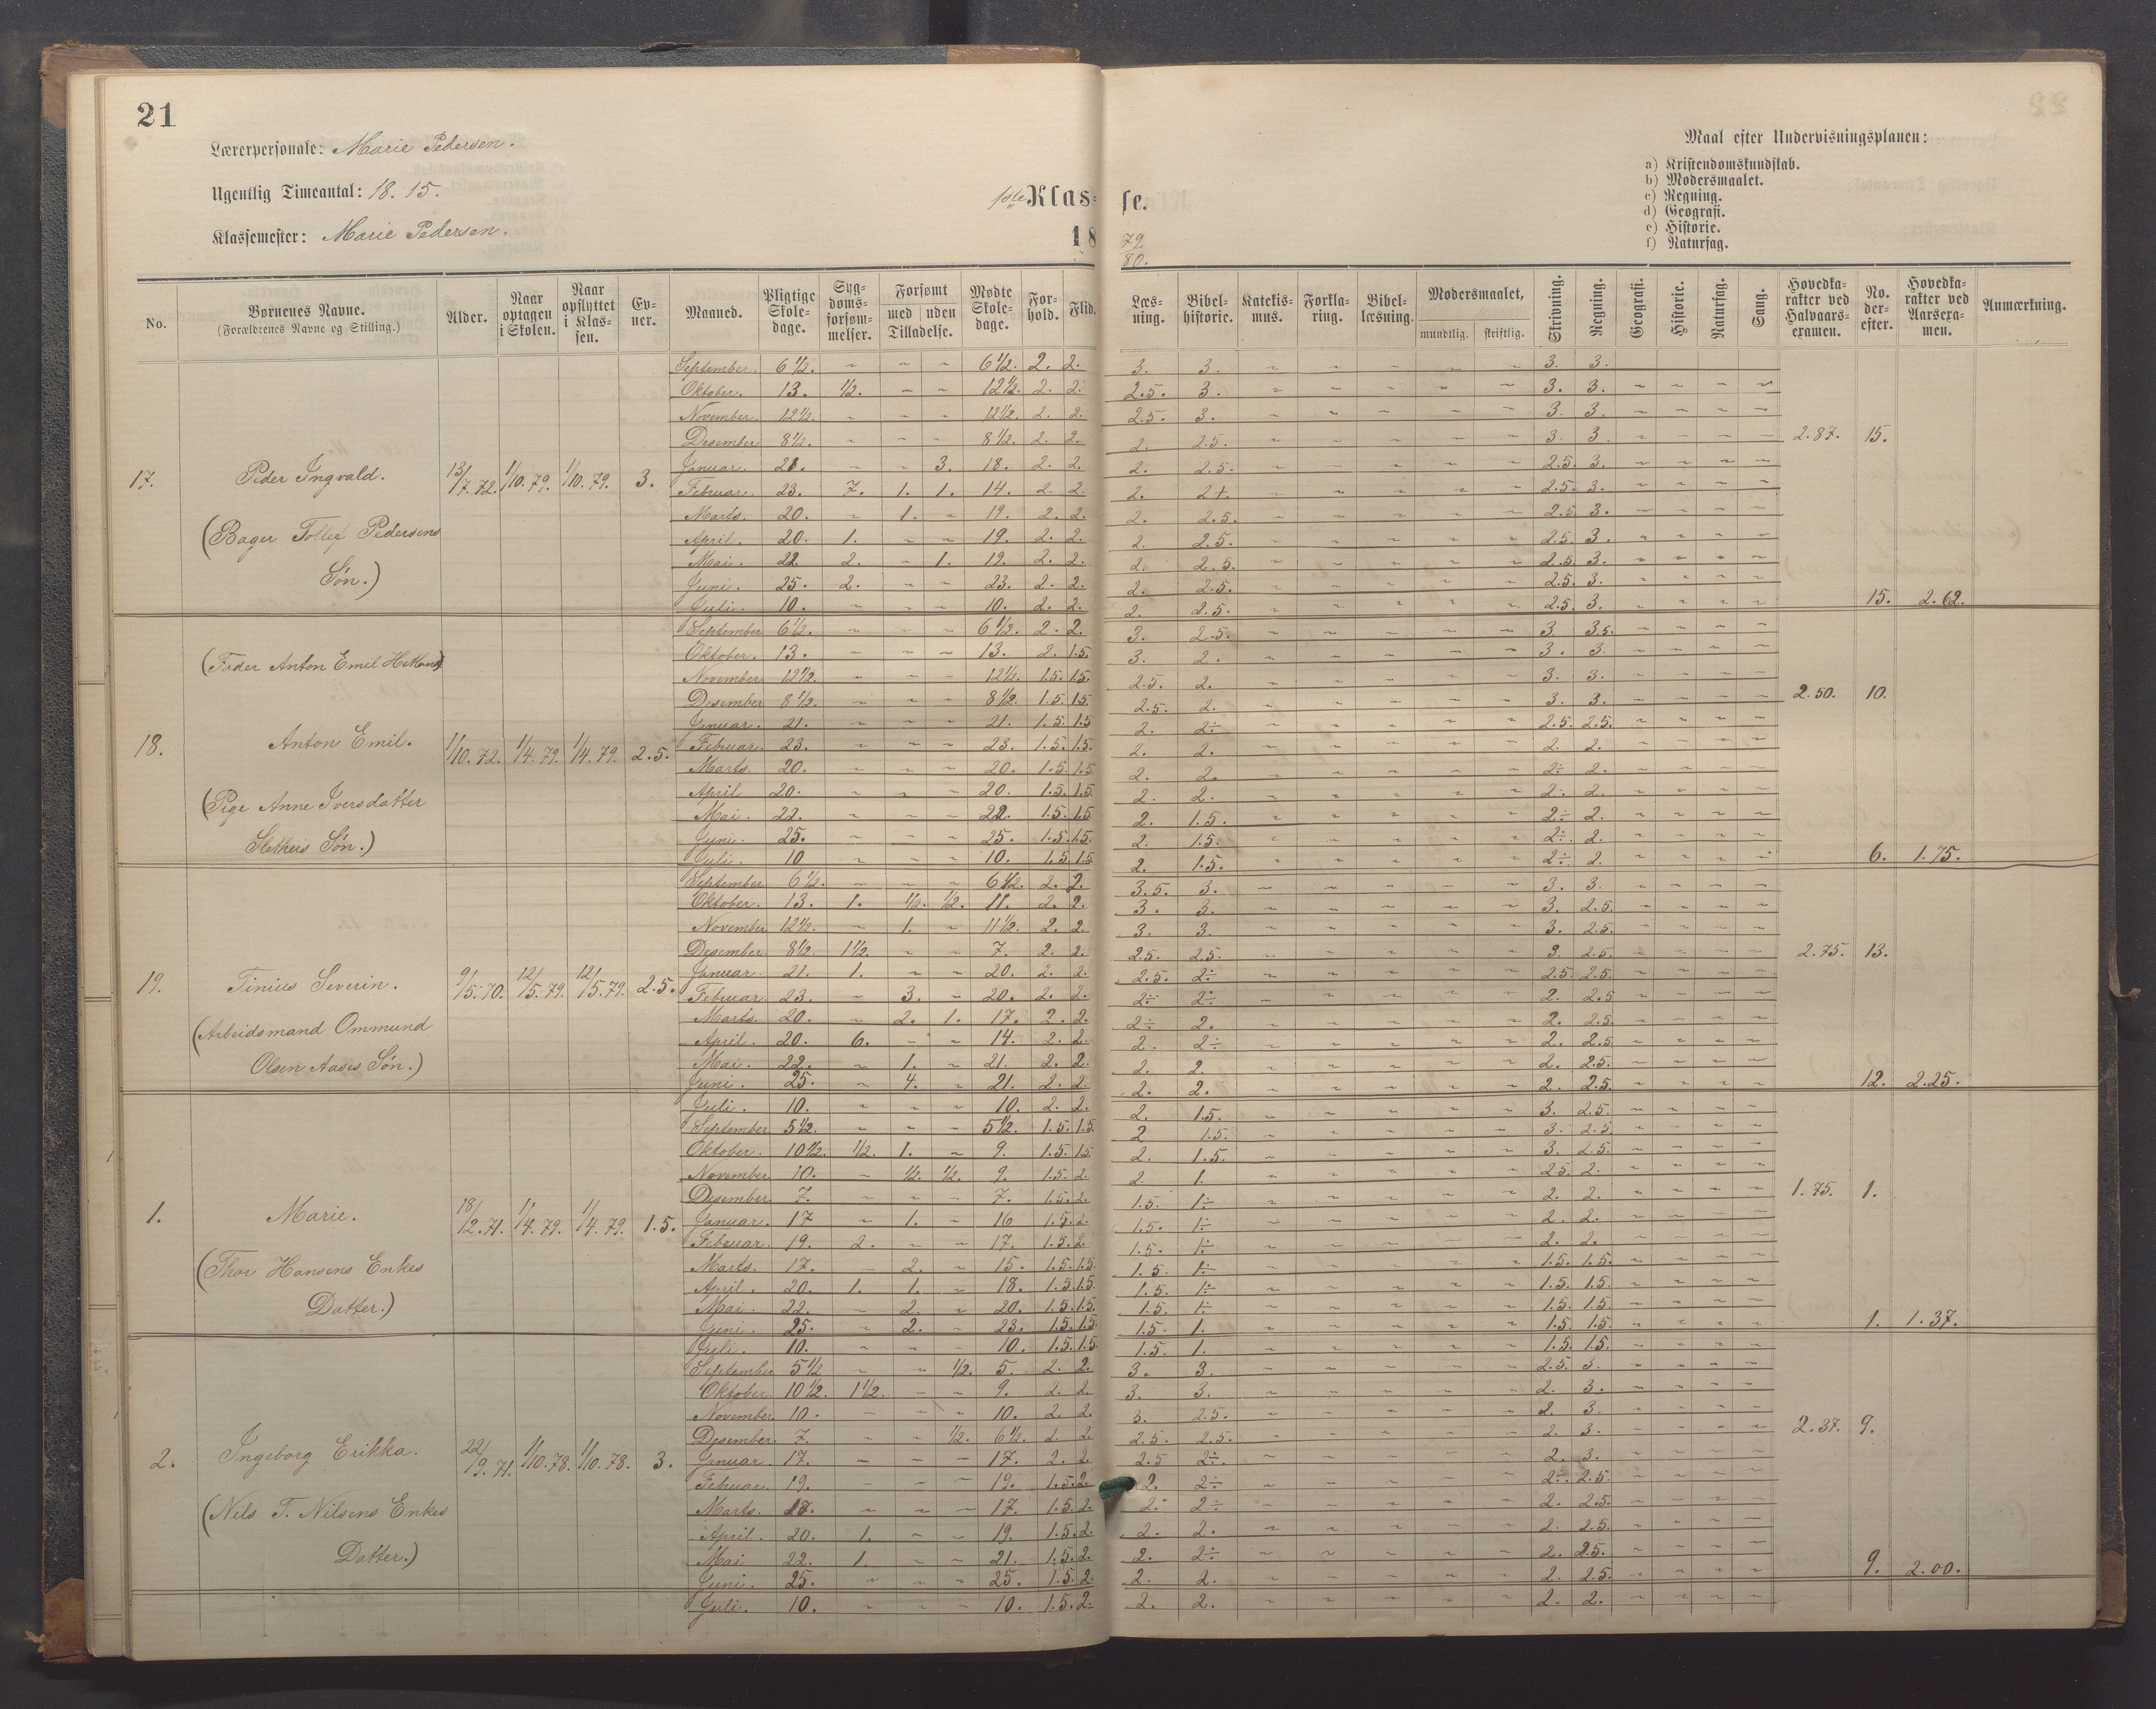 21
Lærerpersonale: Marie Pedersen.
Ugentlig Timeantal: 18. 15.
Klassemester: Marie Pedersen.
1ste Klasse.
18 79/80.
Maal efter Undervisningsplanen:
a) Kristendomskundskab.
b) Modersmaalet.
c) Regning.
d) Geografi.
e) Historie.
f) Naturfag.
No. | Børnenes Navne. (Forældrenes Navne og Stilling.) | Alder. | Naar optagen i Skolen. | Naar opflyttet i Klassen. | Evner. | Maaned. | Pligtige Skoledage. | Sygdomsforsømmelser. | Forsømt med / uden Tilladelse. | Mødte Skoledage. | Forhold. | Flid. | Læsning. | Bibelhistorie. | Katekismus. | Forklaring. | Bibellæsning. | Modersmaalet, mundtlig. skriftlig. | Skrivning. | Regning. | Geografi. | Historie. | Naturfag. | Sang. | Hovedkarakter ved Halvaarsexamen. | No. derefter. | Hovedkarakter ved Aarsexamen. | Anmærkning.
17. Peder Ingvald. 13/7.72. 1/10.79. 1/10.79. 3.
(Bager Tollef Pedersens
Søn.)
September. 6½. ~ ~ ~ 6½. 2. 2. 3. 3. ~ ~ ~ ~ ~ 3. 3.
Oktober. 13. ½. ~ ~ 12½. 2. 2. 2.5. 3. ~ ~ ~ ~ ~ 3. 3. ~ ~ ~ ~
November. 12½. ~ ~ ~ 12½. 2. 2. 2.5. 3. ~ ~ ~ ~ ~ 3. 3. ~ ~ ~ ~
Desember. 8½. ~ ~ ~ 8½. 2. 2. 2. 2.5. ~ ~ ~ ~ ~ 3. 3. ~ ~ ~ ~ 2.87. 15.
Januar. 21. ~ ~ 3. 18. 2. 2. 2. 2.5. ~ ~ ~ ~ ~ 2.5. 3. ~ ~ ~ ~
Februar. 23. 7. 1. 1. 14. 2. 2. 2. 2+. ~ ~ ~ ~ ~ 2.5. 3. ~ ~ ~ ~
Marts. 20. ~ 1. ~ 19. 2. 2. 2. 2.5. ~ ~ ~ ~ ~ 2.5 3. ~ ~ ~ ~
April. 20. 1. ~ ~ 19. 2. 2. 2. 2.5. ~ ~ ~ ~ ~ 2.5. 3. ~ ~ ~ ~
Mai. 22. 2. ~ 1. 19. 2. 2. 2. 2.5. ~ ~ ~ ~ ~ 2.5 3. ~ ~ ~ ~
Juni. 25. 2. ~ ~ 23. 2. 2. 2. 2.5. ~ ~ ~ ~ ~ 2.5. 3. ~ ~ ~ ~
Juli. 10. ~ ~ ~ 10. 2. 2. 2. 2.5. ~ ~ ~ ~ ~ 2.5. 3. ~ ~ ~ ~ 15. 2.62.
(Fader Anton Emil
18. Anton Emil. 1/10.72. 1/4.79. 1/4.79. 2.5.
(Pige Anne Iversdatter
Søn.)
September 6½. ~ ~ ~ 6½. 2. 2. 3. 2.5. ~ ~ ~ ~ ~ 3 3.5. ~ ~ ~ ~
Oktober. 13. ~ ~ ~ 13. 2. 1.5. 3. 2. ~ ~ ~ ~ ~ 3. 3 ~ ~ ~ ~
November. 12½. ~ ~ ~ 12½. 1.5. 1.5. 2.5. 2. ~ ~ ~ ~ ~ 3. 3. ~ ~ ~ ~
Desember 8½. ~ ~ ~ 8½. 1.5. 1.5. 2.5. 2. ~ ~ ~ ~ ~ 3. 3. ~ ~ ~ ~ 2.50. 10.
Januar. 21. ~ ~ ~ 21. 1.5. 1.5 2. 2÷ ~ ~ ~ ~ ~ 2.5. 2.5. ~ ~ ~ ~
Februar. 23. ~ ~ ~ 23. 1.5. 1.5. 2. 2. ~ ~ ~ ~ ~ 2. 2. ~ ~ ~ ~
Marts. 20. ~ ~ ~ 20. 1.5. 1.5. 2. 2. ~ ~ ~ ~ ~ 2÷ 2. ~ ~ ~ ~
April 20. ~ ~ ~ 20. 1.5. 1.5. 2. 2. ~ ~ ~ ~ ~ 2÷ 2. ~ ~ ~ ~
Mai. 22. ~ ~ ~ 22. 1.5. 1.5 2. 1.5. ~ ~ ~ ~ ~ 2÷ 2. ~ ~ ~ ~
Juni. 25. ~ ~ ~ 25. 1.5. 1.5. 2. 1.5. ~ ~ ~ ~ ~ 2÷. 2. ~ ~ ~ ~
Juli. 10 ~ ~ ~ 10. 1.5. 1.5. 2. 1.5. ~ ~ ~ ~ ~ 2÷. 2. ~ ~ ~ ~ 6. 1.75.
19. Tinius Severin. 9/5.70. 12/5.79. 12/5.79. 2.5.
(Arbeidsmand Ommund
Olsen Aases Søn.)
September 6½. ~ ~ ~ 6½. 2. 2. 3.5. 3. ~ ~ ~ ~ ~ 3. 3. ~ ~ ~ ~
Oktober. 13. 1. ½. ½. 11. 2. 2. 3. 3. ~ ~ ~ ~ ~ 3. 2.5. ~ ~ ~ ~
November 12½. ~ 1. ~ 11½. 2. 2. 3. 3. ~ ~ ~ ~ ~ 3. 2.5. ~ ~ ~ ~
Desember. 8½. 1½. ~ ~ 7. 2. 2. 2.5. 2.5. ~ ~ ~ ~ ~ 3. 2.5. ~ ~ ~ ~ 2.75. 13.
Januar. 21. 1. ~ ~ 20. 2. 2. 2.5. 2÷ ~ ~ ~ ~ ~ 2.5. 2.5. ~ ~ ~ ~
Februar. 23. ~ 3. ~ 20. 2. 2. 2÷ 2÷ ~ ~ ~ ~ ~ 2. 2.5 ~ ~ ~ ~
Marts. 20. ~ 2. 1. 17. 2. 2. 2÷ 2. ~ ~ ~ ~ ~ 2. 2.5. ~ ~ ~ ~
April. 20. 6. ~ ~ 14. 2. 2. 2. 2÷ ~ ~ ~ ~ ~ 2. 2.5 ~ ~ ~ ~
Mai. 22. ~ 1. ~ 21. 2. 2. 2. 2. ~ ~ ~ ~ ~ 2. 2.5. ~ ~ ~ ~
Juni. 25. ~ 4. ~ 21. 2. 2. 2. 2. ~ ~ ~ ~ ~ 2. 2.5. ~ ~ ~ ~ 12. 2.25.
Juli. 10. ~ ~ ~ 10. 2. 2. 2. 1.5. ~ ~ ~ ~ ~ 3. 2.5. ~ ~ ~ ~
1. Marie. 18/12.71. 1/4.79. 1/4.79. 1.5.
(Thor Hansens Enkes
Datter.)
September 5½. ~ ~ ~ 5½. 1.5. 1.5. 2 1.5. ~ ~ ~ ~ ~ 3. 2.5 ~ ~ ~ ~
Oktober. 10½. ½. 1. ~ 9. 1.5. 1.5 2. 1.5. ~ ~ ~ ~ ~ 3. 2.5. ~ ~ ~ ~
November 10. ~ ½. ½. 9. 1.5. 2. 2. 1. ~ ~ ~ ~ ~ 2.5. 2. ~ ~ ~ ~
Desember. 7. ~ ~ ~ 7. 1.5. 2. 1.5. 1÷ ~ ~ ~ ~ ~ 2. 2. ~ ~ ~ ~ 1.75. 1.
Januar. 17 ~ 1. ~ 16 1.5. 2. 1.5. 1÷ ~ ~ ~ ~ ~ 2. 2. ~ ~ ~ ~
Februar. 19. 2. ~ ~ 17. 1.5. 2. 1.5. 1÷ ~ ~ ~ ~ ~ 2. 2. ~ ~ ~ ~
Marts. 17. ~ 2. ~ 15. 1.5. 1.5. 1.5. 1÷ ~ ~ ~ ~ ~ 1.5. 1.5. ~ ~ ~ ~
April. 20. 1. 1. ~ 18. 1.5. 1.5. 1.5. 1÷ ~ ~ ~ ~ ~ 1.5. 1.5. ~ ~ ~ ~
Mai. 22. ~ 2. ~ 20. 1.5. 1.5. 1.5. 1÷ ~ ~ ~ ~ ~ 1.5. 1.5. ~ ~ ~ ~
Juni. 25. ~ 2. ~ 23. 1.5. 1.5 1.5. 1. ~ ~ ~ ~ ~ 1.5. 1.5. ~ ~ ~ ~ 1. 1.37.
Juli. 10. ~ ~ ~ 10. 1.5. 1.5. 1.5. 1. ~ ~ ~ ~ ~ 1.5. 1.5. ~ ~ ~ ~
2. Ingeborg Erikka. 22/9.71. 1/10.78. 1/10.78. 3.
(Nils T. Nilsens Enkes
Datter.)
September 5½ ~ ~ ½. 5. 2. 2. 3. 3. ~ ~ ~ ~ ~ 2.5. 3. ~ ~ ~ ~
Oktober. 10½. 1½. ~ ~ 9. 2. 2. 3. 3. ~ ~ ~ ~ ~ 2. 3. ~ ~ ~ ~
November 10. ~ ~ ~ 10. 2. 2. 3. 2.5. ~ ~ ~ ~ ~ 2. 3. ~ ~ ~ ~
Desember. 7. ~ ~ ½. 6½. 2. 2. 2.5. 2.5. ~ ~ ~ ~ ~ 2. 3. ~ ~ ~ ~ 2.37. 9.
Januar. 17. ~ ~ ~ 17. 2. 2. 2.5 2÷. ~ ~ ~ ~ ~ 2. 3. ~ ~ ~ ~
Februar. 19. ~ ~ ~ 19. 1.5. 2. 2. 2÷ ~ ~ ~ ~ ~ 2÷. 2.5. ~ ~ ~ ~
Marts. 17. ~ ~ ~ 17. 1.5. 2. 2. 2÷ ~ ~ ~ ~ ~ 2. 2.5. ~ ~ ~ ~
April. 20. 1. ~ ~ 19. 1.5. 2. 2. 2. ~ ~ ~ ~ ~ 2. 2.5. ~ ~ ~ ~
Mai 22. 1. ~ ~ 21. 1.5. 2. 2. 2÷ ~ ~ ~ ~ ~ 2. 2.5. ~ ~ ~ ~
Juni. 25. ~ ~ ~ 25. 1.5. 2. 2. 2. ~ ~ ~ ~ ~ 2. 2.5. ~ ~ ~ ~ 9. 2.00.
Juli. 10. ~ ~ ~ 10. 1.5. 2. 2. 2. ~ ~ ~ ~ ~ 2. 2. ~ ~ ~ ~